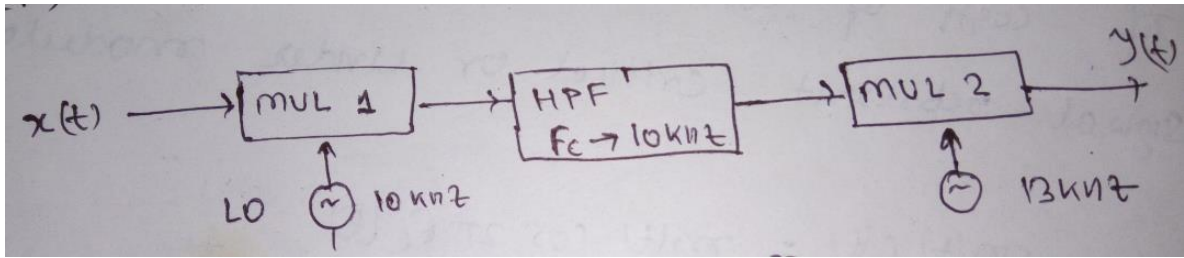 y(t)
x(t)
MUL 1
HPF
Fc → 10 KHZ
MUL 2
LO
~
10 KHZ
~
13 KHZ